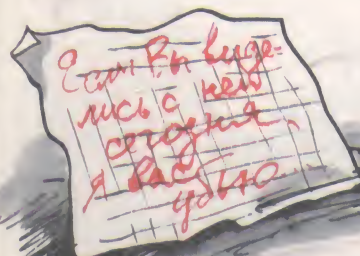 Если Вы виде-
лись с ней
сегодня,
я Вас
убью